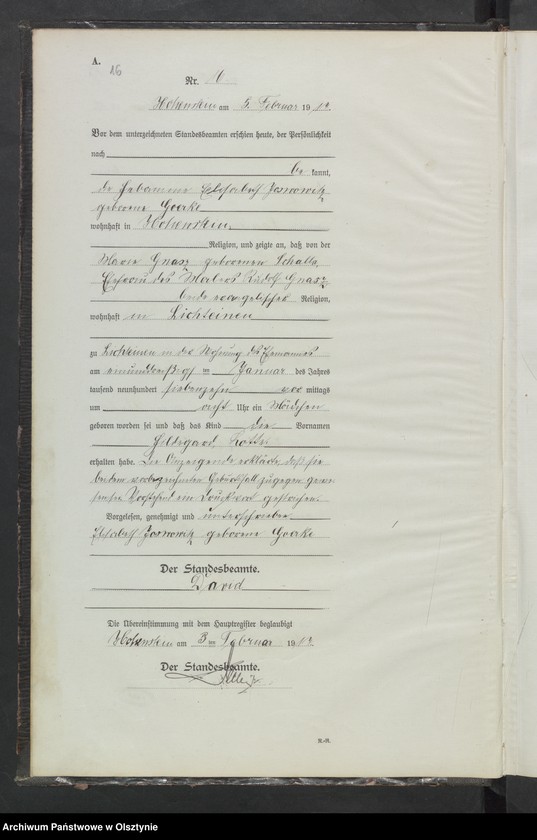 A.
16
Nr. 16
Hohenstein am 3. Februar 1917.
Vor dem unterzeichneten Standesbeamten erschien heute, der Persönlichkeit
nach
be kannt,
die Hebamme Elisabeth
geborene Goerke
wohnhaft in Hohenstein,
Religion, und zeigte an, daß von der
Marie Gnass geborenen Schalla,
Ehefrau des Rudolf Gnass,
beide evangelischer Religion,
wohnhaft in Lichteinen
zu Lichteinen in der Wohnung des Ehemannes
am einunddreißigsten Januar des Jahres
tausend neunhundert siebenzehn vor mittags
um acht Uhr ein Mädchen
geboren worden sei und daß das Kind die Vornamen
Hildegard Lotte
erhalten habe. Die Anzeigende erklärte, daß sie
bei dem vorbezeichneten Geburtsfall zugegen gewe
sen sei. Vorstehend ein Druckwort gestrichen.
Vorgelesen, genehmigt und unterschrieben
Elisabeth geborene Goerke
Der Standesbeamte.
David
Die Übereinstimmung mit dem Hauptregister beglaubigt
Hohenstein am 3ten Februar 1917.
Der Standesbeamte.
R.-R.
Archiwum Państwowe w Olsztynie